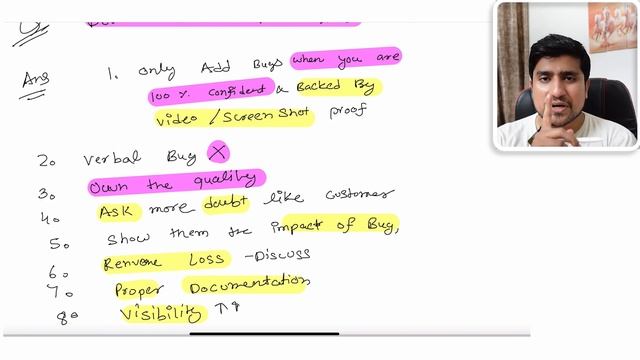 Ans
1. Only Add Bugs when you are
100 % confident & Backed By
video / Screen Shot proof
2. Verbal Bug X
3. Own the quality
4. Ask more doubt like customer
5. Show them the impact of Bug,
6. Renvone Loss - Discuss
7. Proper Documentation
8. Visibility ↑↑